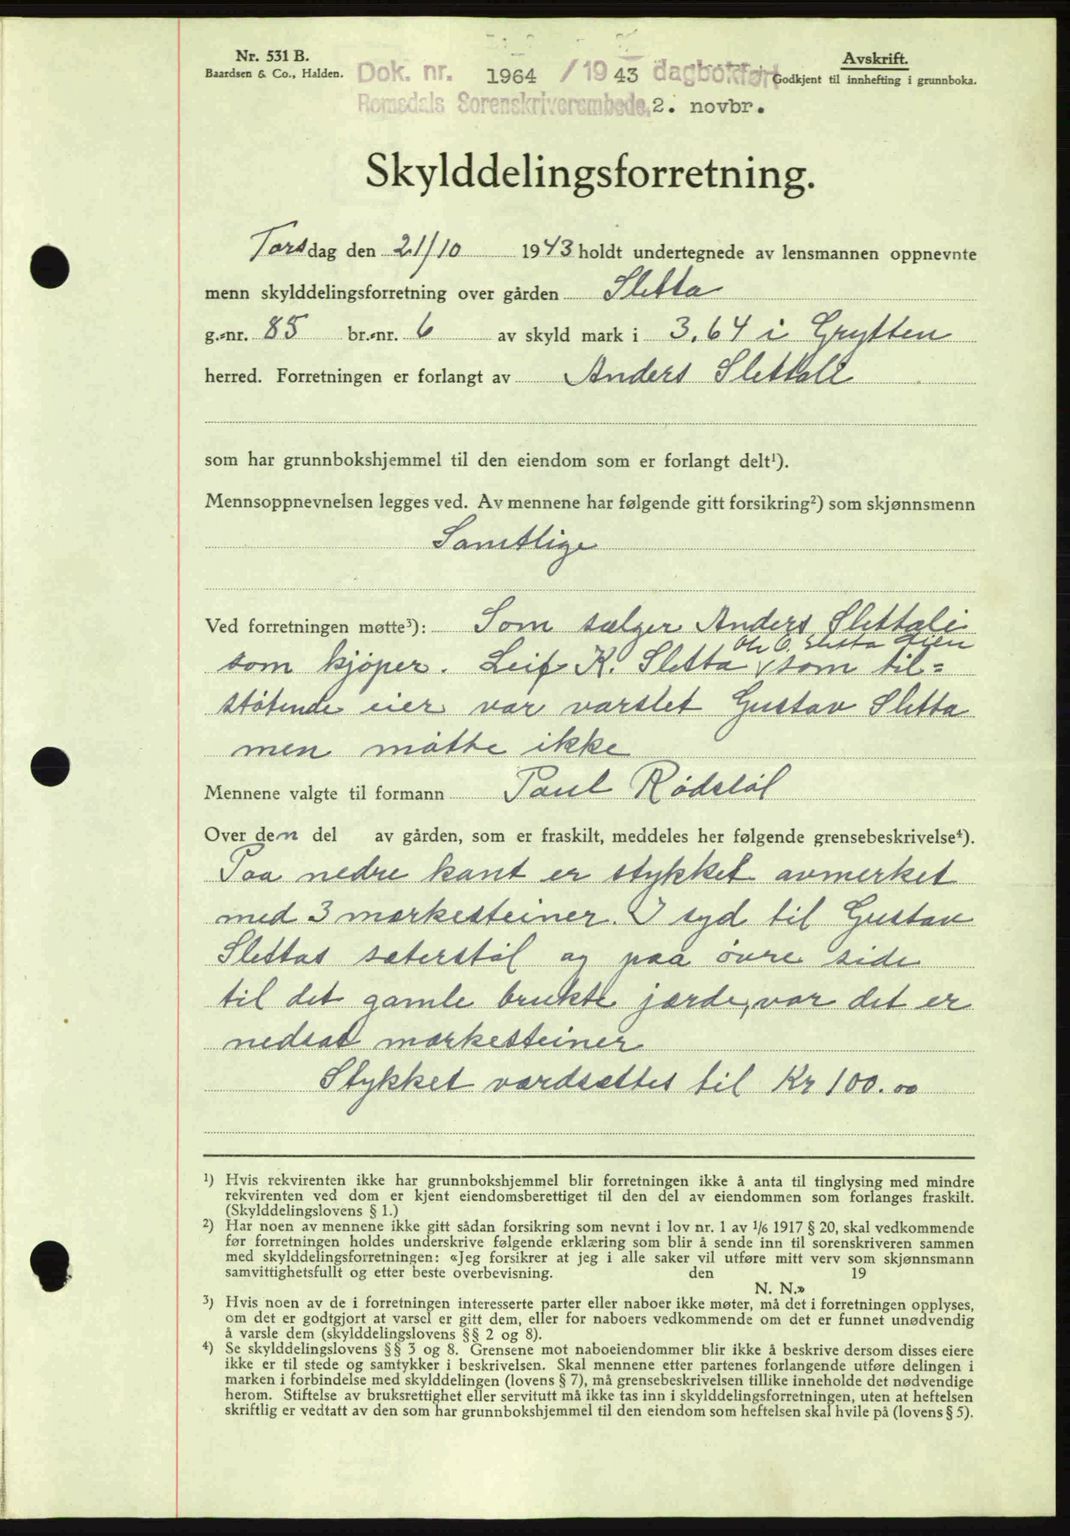 Nr. 531 B.
Baardsen & Co., Halden.
Dok. nr. 1964 / 1943 dagbokført
Romsdals Sorenskriverembede, 2. novbr.
Avskrift.
Godkjent til innhefting i grunnboka.
Skylddelingsforretning.
Torsdag den 21/10 1943 holdt undertegnede av lensmannen oppnevnte
menn skylddelingsforretning over gården Sletta
g.-nr. 85 br.-nr. 6 av skyld mark i 3,64 i Grytten
herred. Forretningen er forlangt av Anders Slettali
som har grunnbokshjemmel til den eiendom som er forlangt delt¹).
Mennsoppnevnelsen legges ved. Av mennene har følgende gitt forsikring²) som skjønnsmenn
Samtlige
Ved forretningen møtte³): Som sælger Anders Slettali
O. Sletta
som kjøper. Leif K. Sletta v som til=
støtende eier var varslet Gustav Sletta
men møtte ikke
Mennene valgte til formann Paul Rødstøl
Over den del av gården, som er fraskilt, meddeles her følgende grensebeskrivelse⁴).
Paa nedre kant er stykket avmerket
med 3 markesteiner. I syd til Gustav
Slettas sæterstøl og paa øvre side
til det gamle brukte jærde, var det er
nedsat markesteiner
Stykket værdsættes til Kr 100.00
¹) Hvis rekvirenten ikke har grunnbokshjemmel blir forretningen ikke å anta til tinglysing med mindre
rekvirenten ved dom er kjent eiendomsberettiget til den del av eiendommen som forlanges fraskilt.
(Skylddelingslovens § 1.)
²) Har noen av mennene ikke gitt sådan forsikring som nevnt i lov nr. 1 av 1/6 1917 § 20, skal vedkommende
før forretningen holdes underskrive følgende erklæring som blir å sende inn til sorenskriveren sammen
med skylddelingsforretningen: «Jeg forsikrer at jeg i alle saker vil utføre mitt verv som skjønnsmann
samvittighetsfullt og etter beste overbevisning. den 19
N. N.»
³) Hvis noen av de i forretningen interesserte parter eller naboer ikke møter, må det i forretningen opplyses,
om det er godtgjort at varsel er gitt dem, eller for naboers vedkommende om det er funnet unødvendig
å varsle dem (skylddelingslovens §§ 2 og 8).
⁴) Se skylddelingslovens §§ 3 og 8. Grensene mot naboeiendommer blir ikke å beskrive dersom disses eiere
ikke er til stede og samtykker i beskrivelsen. Skal mennene etter partenes forlangende utføre delingen i
marken i forbindelse med skylddelingen (lovens § 7), må grensebeskrivelsen tillike inneholde det nødvendige
herom. Stiftelse av bruksrettighet eller servitutt må ikke tas inn i skylddelingsforretningen, uten at heftelsen
skriftlig er vedtatt av den som har grunnbokshjemmel til den eiendom som heftelsen skal hvile på (lovens § 5).